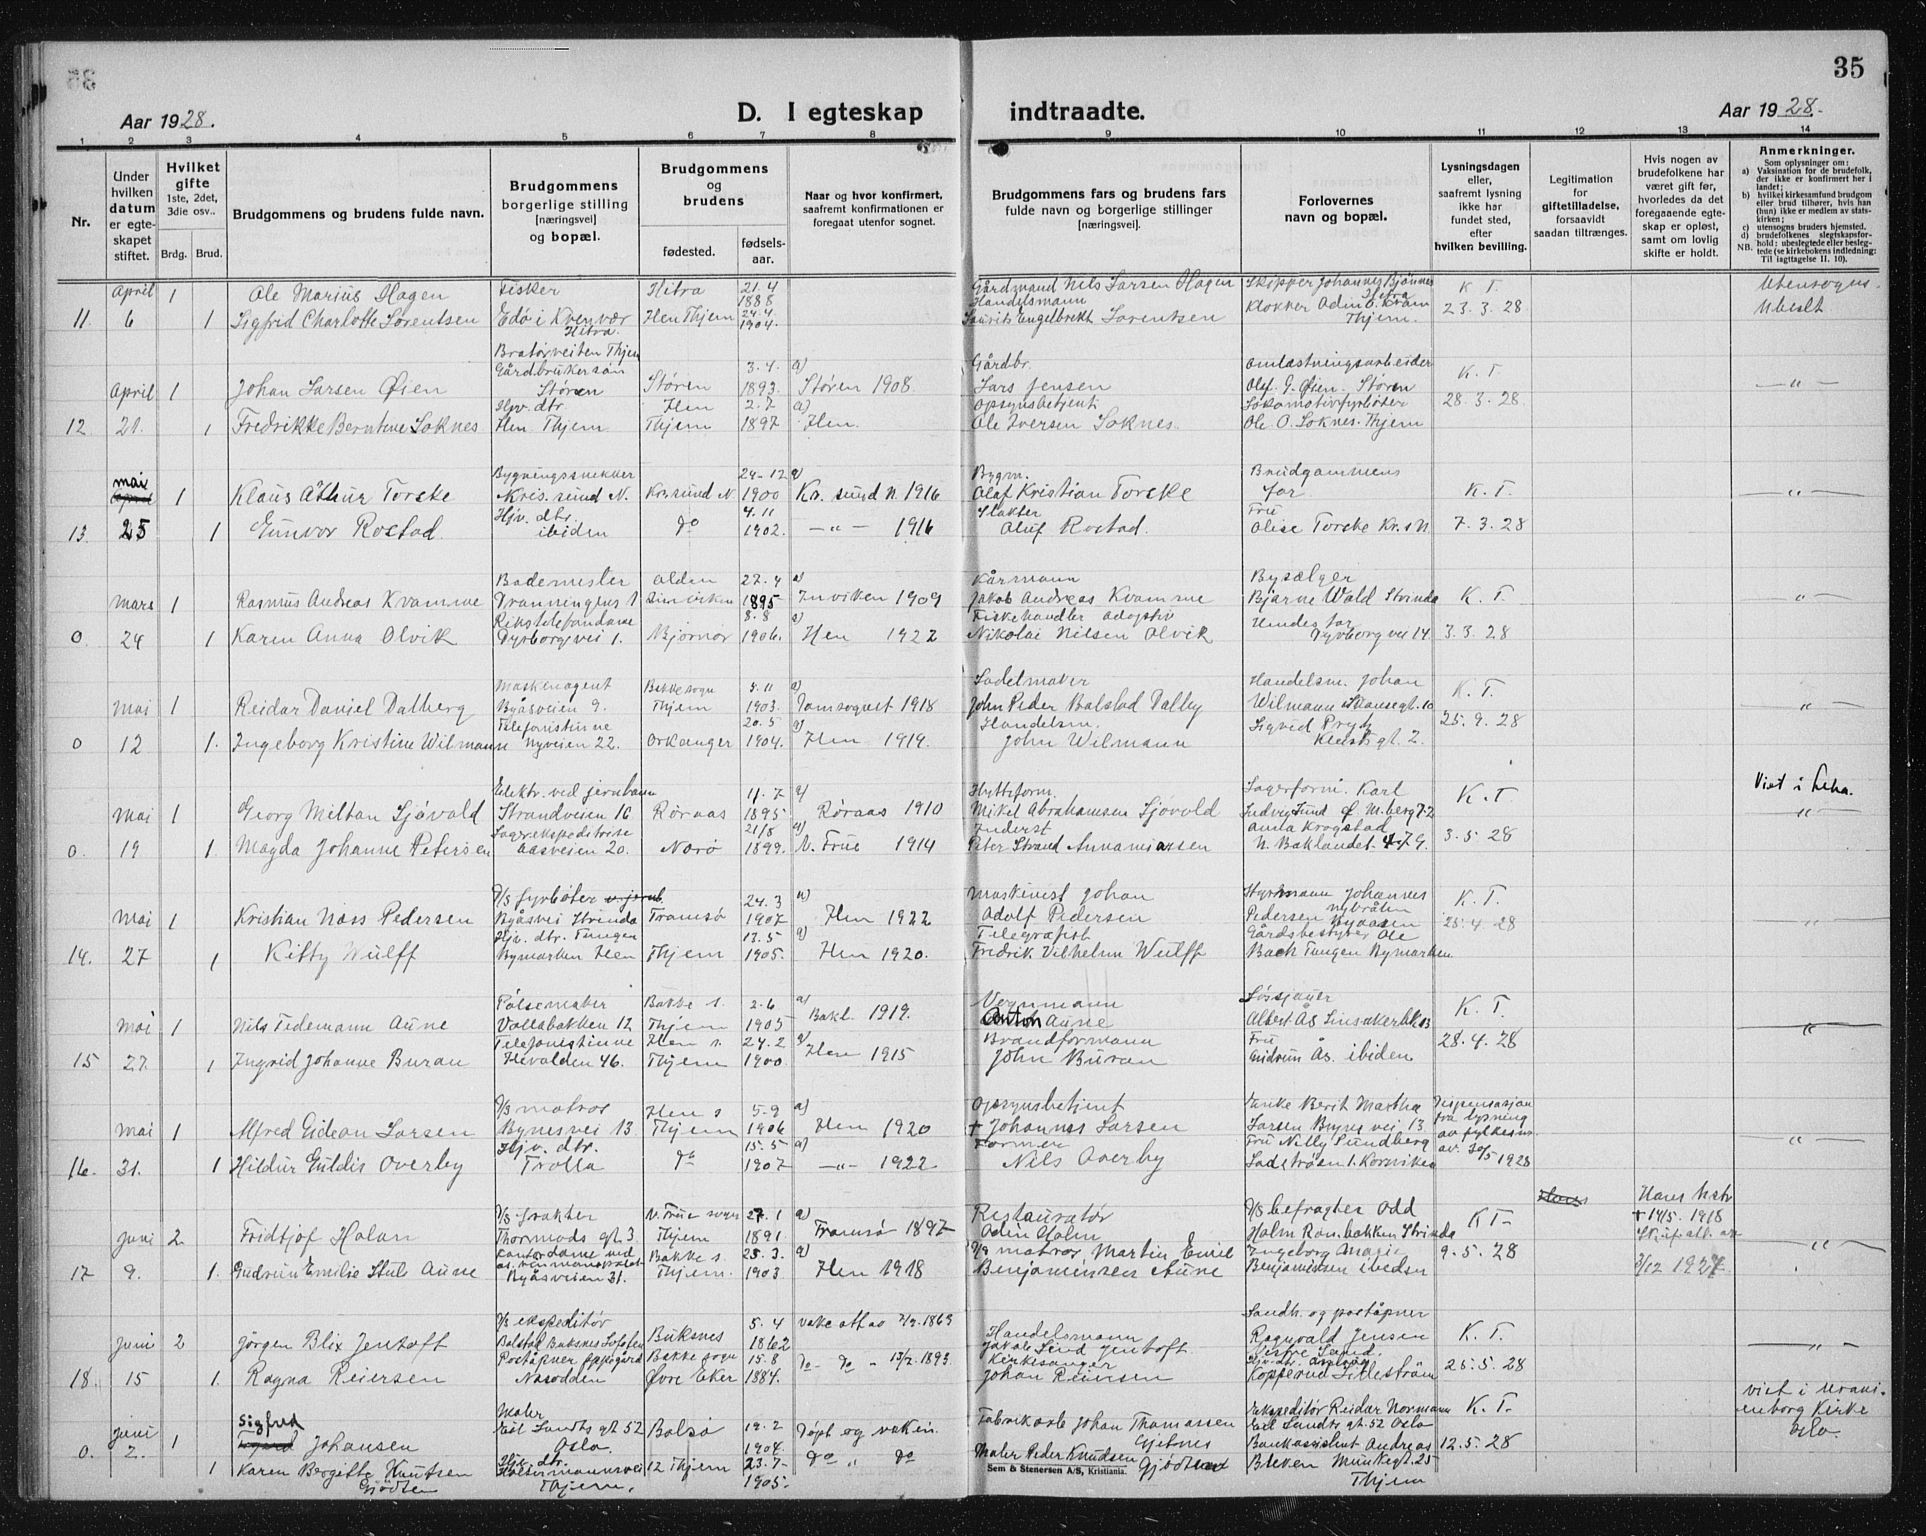 35
Aar 1928.
D. I egteskap indtraadte.
Aar 1928.
1 2 3 4 5 6 7 8 9 10 11 12 13 14
Nr.
Under hvilken datum er egteskapet stiftet.
Hvilket gifte 1ste, 2det, 3die osv..
Brdg. Brud.
Brudgommens og brudens fulde navn.
Brudgommens borgerlige stilling [næringsvei] og bopæl.
Brudgommens og brudens
fødested. fødselsaar.
Naar og hvor konfirmert, saafremt konfirmationen er foregaat utenfor sognet.
Brudgommens fars og brudens fars fulde navn og borgerlige stillinger [næringsvei].
Forlovernes navn og bopæl.
Lysningsdagen eller, saafremt lysning ikke har fundet sted, efter hvilken bevilling.
Legitimation for giftetilladelse, forsaavidt saadan tiltrænges.
Hvis nogen av brudefolkene har været gift før, hvorledes da det foregaaende egteskap er opløst, samt om lovlig skifte er holdt.
Anmerkninger.
Som oplysninger om:
a) Vaksination for de brudefolk, der ikke er konfirmert her i landet;
b) hvilket kirkesamfund brudgom eller brud tilhører, hvis han (hun) ikke er medlem av statskirken;
c) utensogns bruders hjemsted.
d) brudefolkenes slegtskapsforhold: ubeslegtede eller beslegtede (se kirkebokens indledning:
NB. Til iagttagelse II. 10).
April 1 Ole Marius Hagen Fisker Hitra 21.4 1888 Gårdmand Nils Larsen Hagen Skipper Johannes Bjønnes Hitra K.T. Utensogns.
11 6 1 Sigfrid Charlotte Sorentsen Edø i Kvenvær Hitra. Hen Thjem 24-4 1904. Handelsmann Laurits Engelbrekt Sorentsen Klokker Odin O. Kvam Thjem. 23.3.28 Ubeslt.
Bratørveiten Thjem
April 1 Johan Larsen Øien Gårdbrukersøn Støren Støren 3.4. 1893. a) Støren 1908. Gårdbr. Lars Jensen Omlastningsarbeider Olaf J. Øien. Støren K.T. -"-
12 21. 1 Fredrikke Berntine Soknes Hjv. dtr. Hen Thjem Hen Thjem 2.7 1897 a) Hen. Opsynsbetjent Ole Iversen Soknes. Lokomotivfyrbøter Ole O. Soknes. Thjem 28.3.28.
mai 1 Klaus Arthur Torske Bygningssnekker Kris. sund N. Kr. sund N 24-12 1900 a) Kr. sund N. 1916 Bygm. Olaf Kristian Torske Brudgommens far K.T. -"-
13. 25 1 Gunvor Rostad. Hjv. dtr. ibiden do 4.11 1902. -"- 1916 Slakter Oluf Rostad. Fru Olise Torske Kr.s N. 7.3.28
mars 1 Rasmus Andreas Kvamme Bademester Dronningens 1 Olden 22.4 1895 a) Inviken 1909 Kårmann Jakob Andreas Kvamme Bysælger Bjarne Wald Strinda K.T. "
0. 24 1 Karen Anna Olvik Rikstelefondame Dyrborgvei 1. Bjørnør 8.8 1906. a) Hen 1922 Fiskehandler adoptiv Nikolai Nilsen Olvik Hendes far Dyrborgvei 14. 3.3.28
mai 1 Reidar Daniel Dalberg Maskinagent Byåsveien 9. Bakke sogn Thjem 5.11 1903. a) Domsognet 1918 Sadelmaker John Peder Balstad Dalby Handelsm. Johan Wilmann Skansegt. 10 K.T. -"-
0 12 1. Ingeborg Kristine Wilmann Telefonistinne Nyveien 22. Orkanger 20.5 1904. a) Hen 1919. Handelsm. John Wilmann Sigvid Prytz 25.9.28
mai 1 Georg Milton Sjøvold Elektr. ved jernbanen Strandveien 16 Røraas 11.7 1895 a) Røraas 1910 Hytteform. Mikel Abrahamsen Sjøvold Lagerform. Karl Ludvig Lund K.T Viet i Leha.
0. 19 1. Magda Johanne Petersen Lagerekspeditrise Aasveien 20. Nærø 21/8 1899. a) V. Frue 1914 Inderst Peter Strand Anna Krogstad N. Baklandet 3.5.28 "
mai 1 Kristian Nøss Pedersen D/S fyrbøter Byåsvei Strinda Tromsø 24.3 1907 a) Hen 1922 Maskinist Johan Adolf Pedersen Styrmann Johannes Pedersen K.T.
14. 27 1 Kitty Wulff Hjv. dtr. Tungen Bymarken Hen Thjem 12.5 1905. a) Hen 1920. Telegrafist Fredrik Vilhelm Wulff Gårdsbestyrer Ole Bach Tungen Bymarken 25.4.28
mai 1 Nils Tidemann Aune Pølsemaker Vollabakken 12 Bakke s. Thjem 2.6 1905 a) Bakl. 1919. Vognmann Anton Aune Albert Ås K.T. "
15 27. 1 Ingrid Johanne Buran Telefonistinne Hevolden 46. Hen s. Thjem 24.2 1900. a) Hen 1915 Brandformann John Buran Fru Gudrun Ås. ibiden 28.4.28
mai 1 Alfred Gideon Larsen D/S matros Bynesvei 13 Hen s Thjem 5-9 1906 a) Hen 1920 Opsynsbetjent + Johannes Larsen Enke Berit Martha Larsen Bynesvei 13. Dispensasjon fra lysning
16. 31. 1 Hildur Guldis Overby Hjv. dtr. Trolla do 15.5 1907 a) -"- 1922 Former Nils Overby Fru Nelly Lundberg av fylkesm. av 30/5 1928 -"-
juni 2 Fridtjof Holm D/S frakter Thormods gt. 3. V. Frue sogn Thjem 27.1 1891 a) Tromsø 1897 Restauratør Odin Holm D/S befragter Odd Holm Ron.bakken Strinda K.T- Hans hstr + 14/5. 1918
17 9. 1. Gudrun Emilie Stub Aune Kontordame ved Byåsveien 31. Bakke s. Thjem. 25.3. 1903 a) Hen 1918 D/S matros Martin Emil Benjaminsen Aune Ingeborg Marie Benjaminsen ibiden 9.5.28 3/12 1927 -"-
juni 2 Jørgen Blix Jentoft D/S ekspeditør Balstad Buksnes Lofoten Buksnes 5.4 1862 vakc. att. av 2/9. 1863 Handelsmann Jakob Lind Jentoft Landh. og poståpner Ragnvald Jensen K.T. -"-
18. 15 1. Ragna Reiersen Poståpner Oppegård Nesodden Bakke sogn Øvre Eker 15.8 1884. do - do - 13/2. 1893. Kirkesanger Johan Reiersen 25.5.28
juni 1 Sigfred Johansen Maler Eil. Sundts gt. 52 Oslo. Balsø 19.2 1904. Døpt og vakin. Fabrikarb. Johan Thomassen Gjetnes Ekspeditør Reidar Normann Eil. Sundts gt. 52 Oslo K.T. viet i Uranienborg Kirke Oslo
0. 2. 1 Karen Bergitte Knutsen Gjødsen Hjv. dtr. Thjem. Thjem 23.7- 1905. do " do Maler Peder Knudsen Bankassistent Andreas Munkegt. 25 Thjem 12.5.28
Sem & Stenersen A/S, Kristiania.